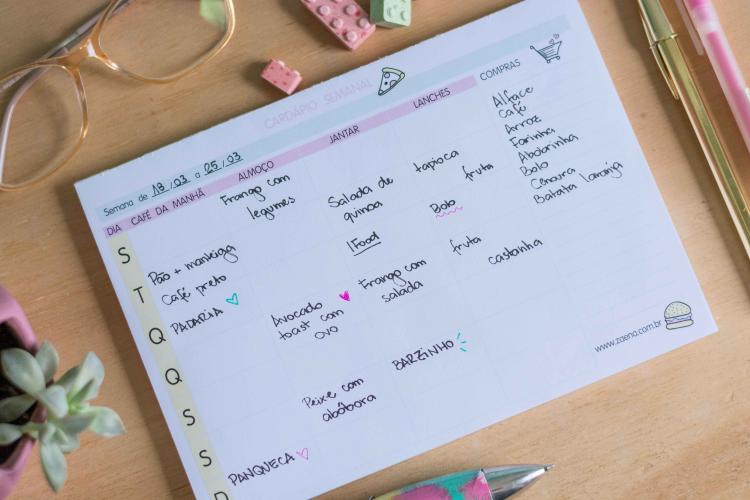 CARDÁPIO SEMANAL
Semana de 18/03 a 25/03
DIA CAFÉ DA MANHÃ ALMOÇO JANTAR LANCHES COMPRAS
S
T
Q
Q
S
S
D
Pão + manteiga
Café preto
PADARIA
PANQUECA
Frango com
legumes
Avocado
toast com
ovo
Peixe com
abóbora
Salada de
quinoa
IFood
Frango com
salada
BARZINHO
tapioca
fruta
Bolo
fruta
castanha
Alface
Café
Arroz
Farinha
Abobrinha
Bolo
Cenoura
Batata laranja
www.zaena.com.br